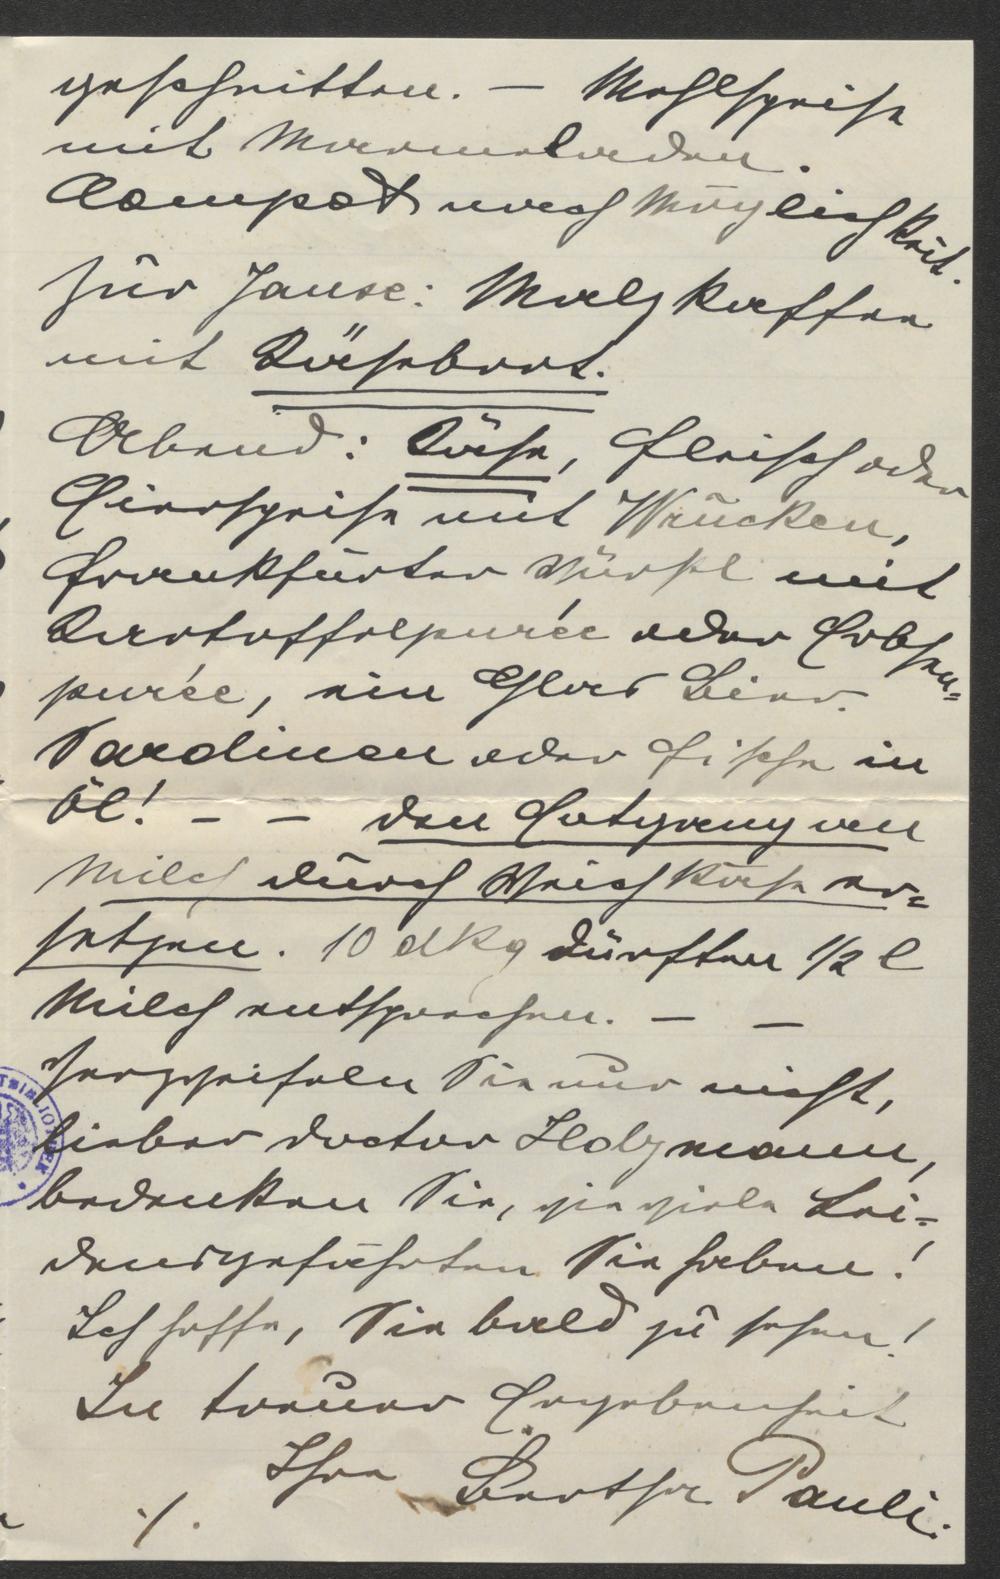 geschnitten. — Mehlspeise
mit Marmeladen.
Compot nach Möglichkeit.
Für Jause: Malzkaffee
mit Käsebrot.
Abend: Käse, Fleisch oder
Eierspeise mit Wrucken,
Frankfurter Würstl mit
Kartoffelpurée oder Erbsen=
purée, ein Glas Bier.
Sardinen oder Fische in
Öl! — — Den Entgang von
Milch durch Weichkäse er=
setzen. 10 dkg dürften 1/2 l
Milch entsprechen. — —
Verzweifeln Sie nur nicht,
lieber Doctor Holzmann,
bedenken Sie, wie viele Lei=
densgefährten Sie haben!
Ich hoffe, Sie bald zu sehen!
In treuer Ergebenheit
Ihre Bertha Pauli.
./.